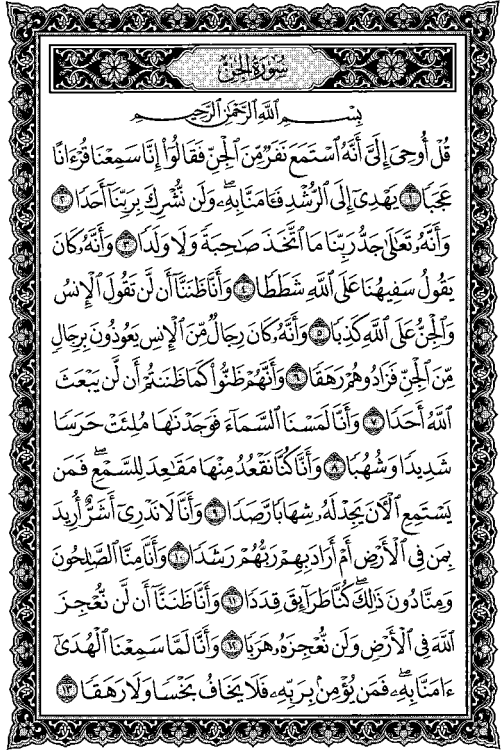 سُورَةُ الْجِنِّ
بِسْمِ اللَّهِ الرَّحْمَٰنِ الرَّحِيمِ
قُلْ أُوحِىَ إِلَىَّ أَنَّهُ ٱسْتَمَعَ نَفَرٌ مِّنَ ٱلْجِنِّ فَقَالُوٓا۟ إِنَّا سَمِعْنَا قُرْءَانًا
عَجَبًا ١ يَهْدِىٓ إِلَى ٱلرُّشْدِ فَـَٔامَنَّا بِهِۦ ۖ وَلَن نُّشْرِكَ بِرَبِّنَآ أَحَدًا ٢
وَأَنَّهُۥ تَعَٰلَىٰ جَدُّ رَبِّنَا مَا ٱتَّخَذَ صَٰحِبَةً وَلَا وَلَدًا ٣ وَأَنَّهُۥ كَانَ
يَقُولُ سَفِيهُنَا عَلَى ٱللَّهِ شَطَطًا ٤ وَأَنَّا ظَنَنَّآ أَن لَّن تَقُولَ ٱلْإِنسُ
وَٱلْجِنُّ عَلَى ٱللَّهِ كَذِبًا ٥ وَأَنَّهُۥ كَانَ رِجَالٌ مِّنَ ٱلْإِنسِ يَعُوذُونَ بِرِجَالٍ
مِّنَ ٱلْجِنِّ فَزَادُوهُمْ رَهَقًا ٦ وَأَنَّهُمْ ظَنُّوا۟ كَمَا ظَنَنتُمْ أَن لَّن يَبْعَثَ
ٱللَّهُ أَحَدًا ٧ وَأَنَّا لَمَسْنَا ٱلسَّمَآءَ فَوَجَدْنَٰهَا مُلِئَتْ حَرَسًا
شَدِيدًا وَشُهُبًا ٨ وَأَنَّا كُنَّا نَقْعُدُ مِنْهَا مَقَٰعِدَ لِلسَّمْعِ ۖ فَمَن
يَسْتَمِعِ ٱلْـَٔانَ يَجِدْ لَهُۥ شِهَابًا رَّصَدًا ٩ وَأَنَّا لَا نَدْرِىٓ أَشَرٌّ أُرِيدَ
بِمَن فِى ٱلْأَرْضِ أَمْ أَرَادَ بِهِمْ رَبُّهُمْ رَشَدًا ١٠ وَأَنَّا مِنَّا ٱلصَّٰلِحُونَ
وَمِنَّا دُونَ ذَٰلِكَ ۖ كُنَّا طَرَآئِقَ قِدَدًا ١١ وَأَنَّا ظَنَنَّآ أَن لَّن نُّعْجِزَ
ٱللَّهَ فِى ٱلْأَرْضِ وَلَن نُّعْجِزَهُۥ هَرَبًا ١٢ وَأَنَّا لَمَّا سَمِعْنَا ٱلْهُدَىٰٓ
ءَامَنَّا بِهِۦ ۖ فَمَن يُؤْمِنۢ بِرَبِّهِۦ فَلَا يَخَافُ بَخْسًا وَلَا رَهَقًا ١٣